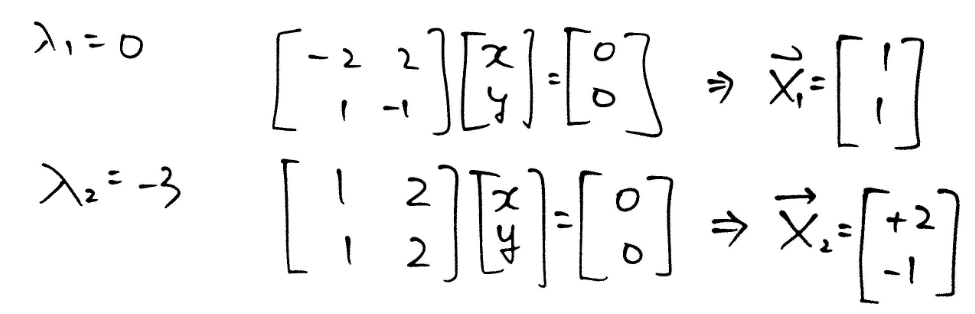 λ₁=0 [-2 2; 1 -1][x; y]=[0; 0] ⇒ X⃗₁=[1; 1]
λ₂=-3 [1 2; 1 2][x; y]=[0; 0] ⇒ X⃗₂=[+2; -1]